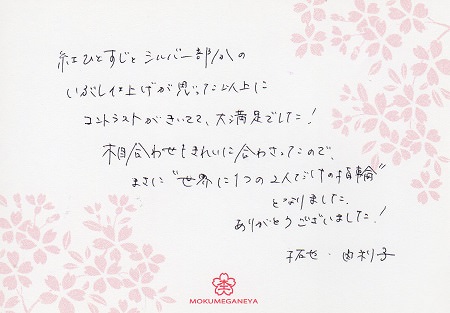 紅ひとすじとシルバー部分の
いぶし仕上げが思った以上に
コントラストがきいてて、大満足でした!
相合わせもきれいに合わさってたので、
まさに"世界に1つの2人だけの指輪"
となりました。
ありがとうございました!
拓也・由利子
MOKUMEGANEYA